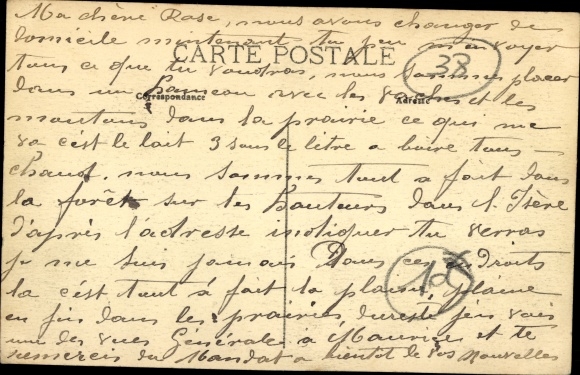 Ma chère Rose, nous avons changer de
domicile maintenant tu peu m'envoyer
CARTE POSTALE
38
tous ce que tu voudras, nous sommes placer
dans un hameau avec les vaches et les
Correspondance
Adresse
moutons dans la prairie ce qui me
va c'est le lait 3 sous le litre a boire tous
chaud, nous sommes tout a fait dans
la forêt sur les hauteurs dans l'Isère
d'après l'adresse indiquer tu verras
je me suis jamais dans ces Droits
la c'est tout à fait la plaine
enfin dans les prairies du reste j'en vais
une des vues Générales à Maurice et te
remercis du Mandat a bientôt de vos nouvelles